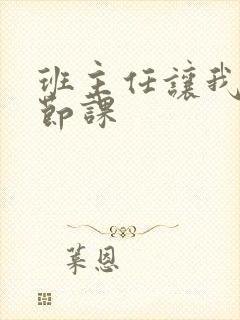 班主任讓我
節課
葉恩